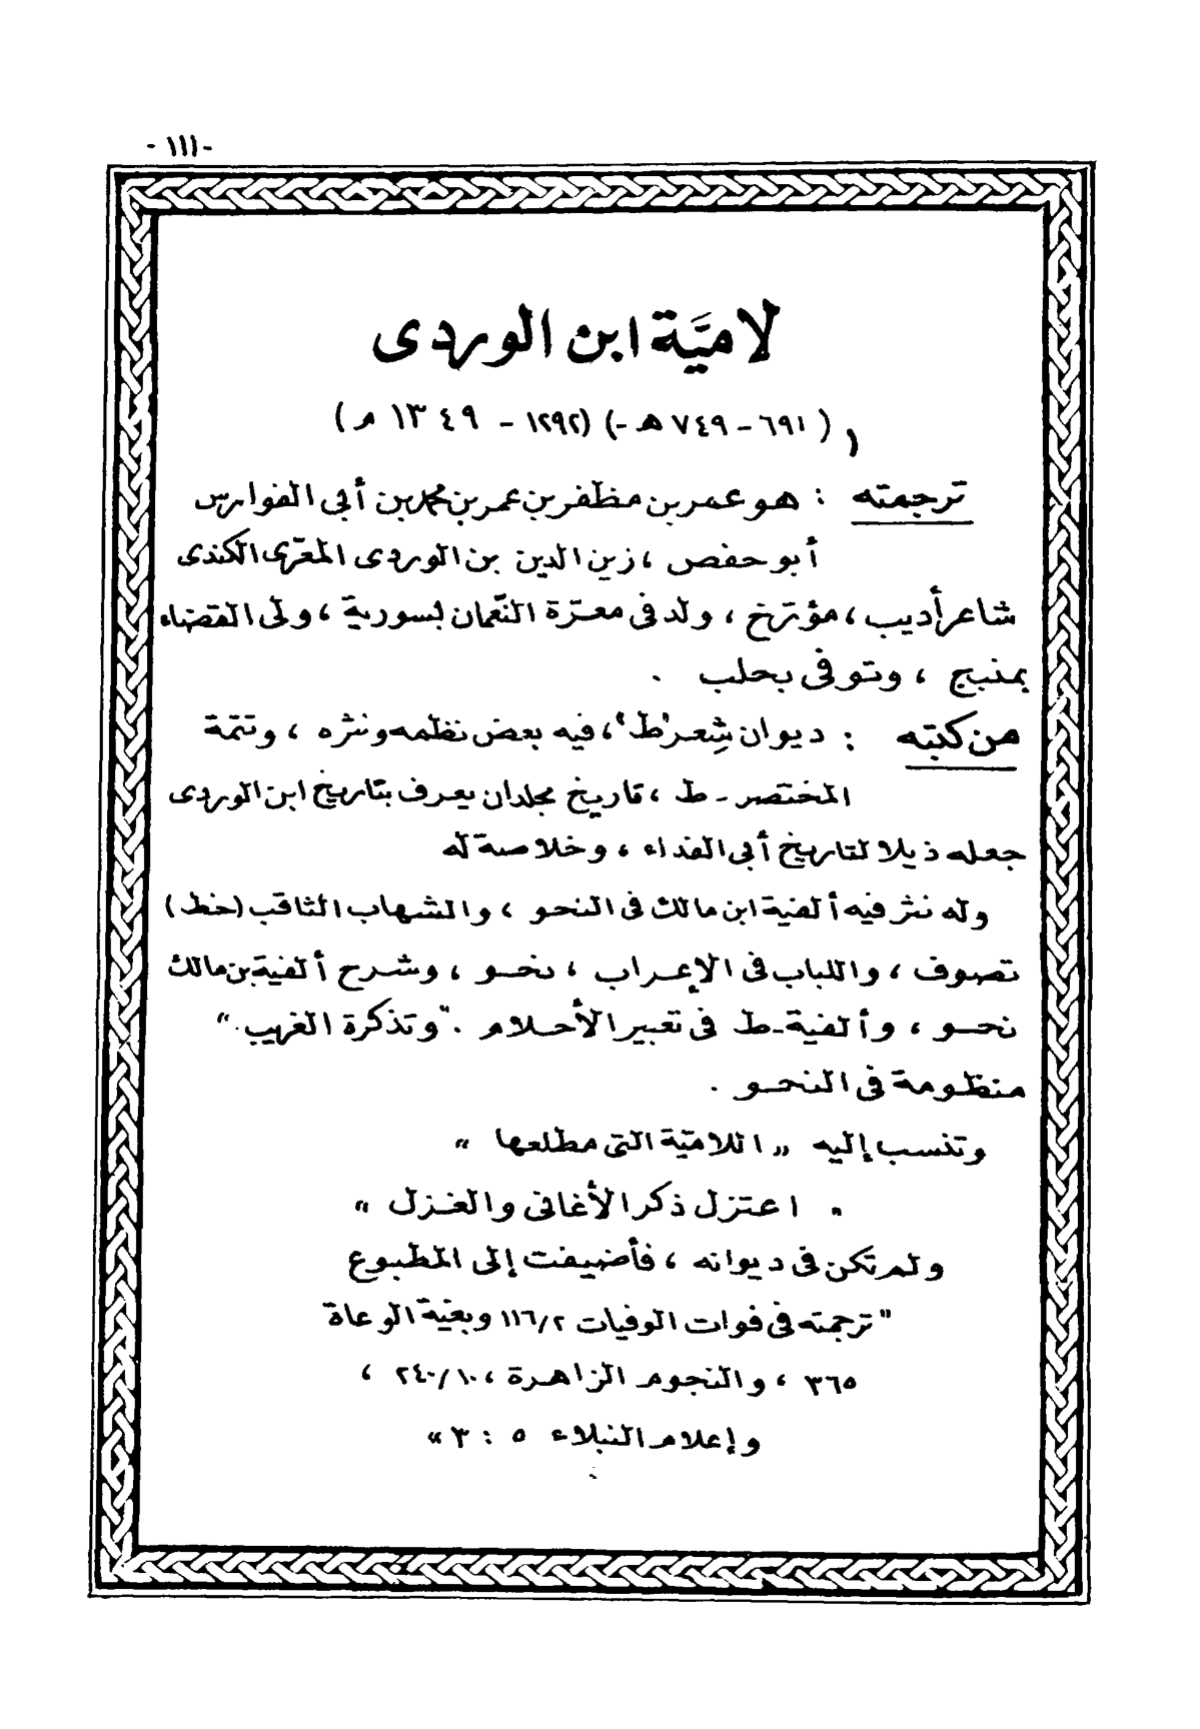 - ١١١ -
لاميَّة ابن الوردى
( ٦٩١ - ٧٤٩ هـ -) (١٢٩٢ - ١٣٤٩ م )
ترجمته : هو عمر بن مظفر بن عمر بن محمد بن أبى الفوارس
أبو حفص ، زين الدين بن الوردى المعرّى الكندى
شاعر أديب ، مؤرّخ ، ولد فى معرّة النّعمان بسوريّة ، ولى القضاء
بمنبج ، وتوفى بحلب .
من كتبه : ديوان شِعر "ط" ، فيه بعض نظمه ونثره ، وتتمّة
المختصر - ط ، تاريخ مجلدان يعرف بتاريخ ابن الوردى
جعله ذيلا لتاريخ أبى الفداء ، وخلاصة له
وله نثر فيه ألفية ابن مالك فى النحو ، والشهاب الثاقب (خط)
تصوف ، واللباب فى الإعراب ، نحو ، وشرح ألفية بن مالك
نحو ، وألفية - ط فى تعبير الأحلام . "وتذكرة الغريب ."
منظومة فى النحو .
وتنسب إليه „ اللاميّة التى مطلعها "
" اعتزل ذكر الأغانى والغزل "
ولم تكن فى ديوانه ، فأضيفت إلى المطبوع
" ترجمته فى فوات الوفيات ١١٦/٢ وبغية الوعاة
٣٦٥ ، والنجوم الزاهرة ، ٢٤٠/١٠ ،
وإعلام النبلاء ٥ : ٣ "